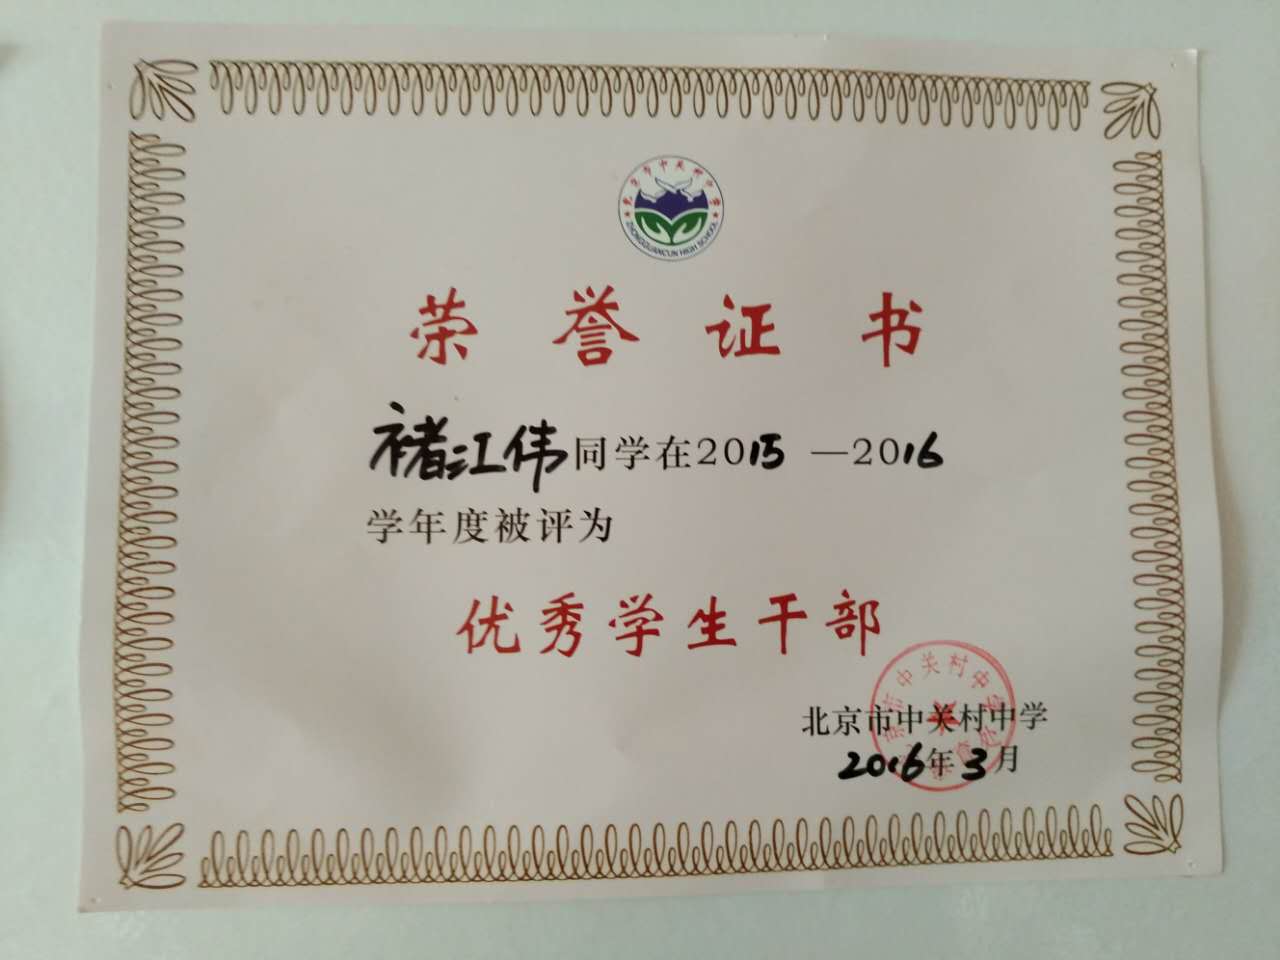 北京市中关村中学
ZHONGGUANCUN HIGH SCHOOL
荣誉证书
褚江伟同学在2015 —2016
学年度被评为
优秀学生干部
北京市中关村中学
2016年3月